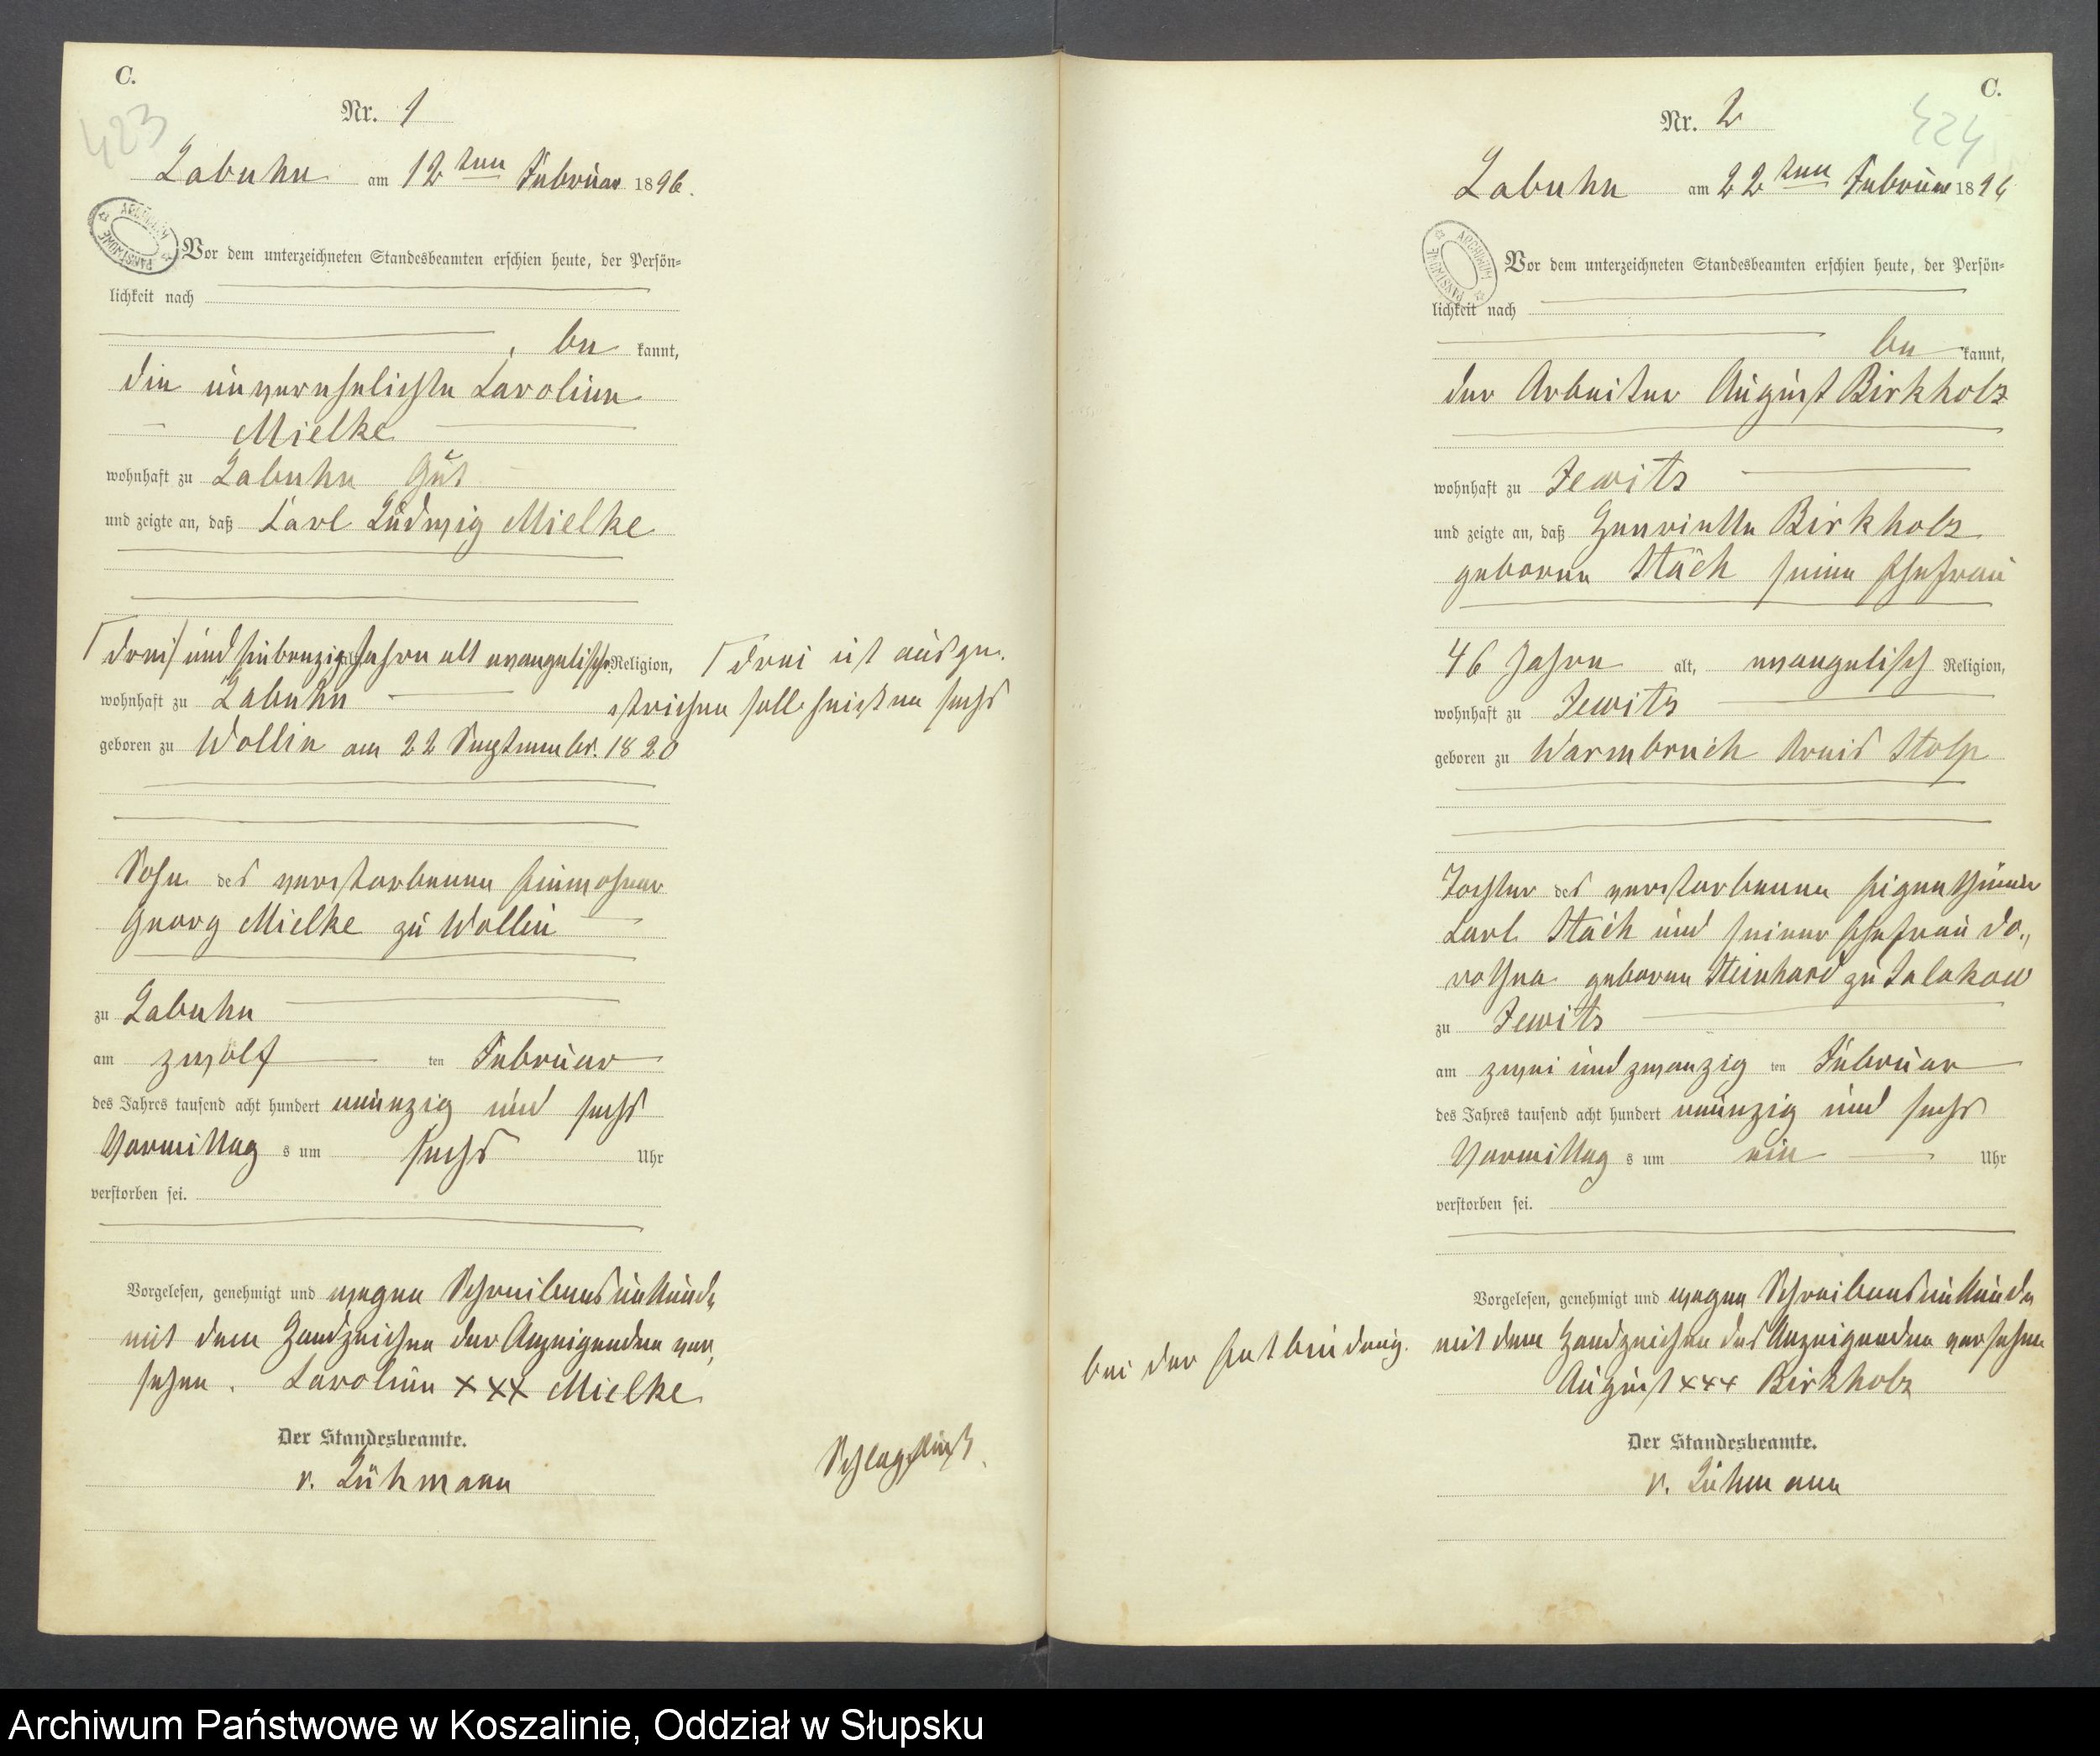 C.
423
Nr. 1
Labuhn am 12 ten Februar 1896.
Vor dem unterzeichneten Standesbeamten erschien heute, der Persön=
lichkeit nach
be kannt,
die unverehelichte Caroline
Mielke
wohnhaft zu Labuhn Gut
und zeigte an, daß Carl Ludwig Mielke
drei und siebenzig Jahre alt evangelischer Religion,
wohnhaft zu Labuhn
geboren zu Wollin am 22 September 1820
Sohn des verstorbenen Einwohner
Georg Mielke zu Wollin
zu Labuhn
am zwölf ten Februar
des Jahres tausend acht hundert neunzig und sechs
Vormittag s um sechs Uhr
verstorben sei.
Vorgelesen, genehmigt und wegen Schreibensunkunde
mit dem Handzeichen der Anzeigenden ver,
sehen. Caroline XXX Mielke
Der Standesbeamte.
v. Lühmann
drei ist ausge.
strichen soll heißen sechs
Schlagfluß
C.
424
Nr. 2
Labuhn am 22 ten Februar 1896
Vor dem unterzeichneten Standesbeamten erschien heute, der Persön=
lichkeit nach
be kannt,
der Arbeiter August Birkholz
wohnhaft zu Jewitz
und zeigte an, daß Henriette Birkholz
geborene Stäch seine Ehefrau
46 Jahre alt, evangelisch Religion,
wohnhaft zu Jewitz
geboren zu Warmbruch Kreis Stolp
Tochter des verstorbenen Eigenthümer
Carl Stäch und seiner Ehefrau Do.,
rothea geborene Steinhard zu Salakow
zu Jewitz
am zwei und zwanzig ten Februar
des Jahres tausend acht hundert neunzig und sechs
Vormittag s um ein Uhr
verstorben sei.
Vorgelesen, genehmigt und wegen Schreibensunkunde
mit dem Handzeichen des Anzeigenden versehen
August XXX Birkholz
Der Standesbeamte.
v. Lühmann
bei der Entbindung.
Archiwum Państwowe w Koszalinie, Oddział w Słupsku